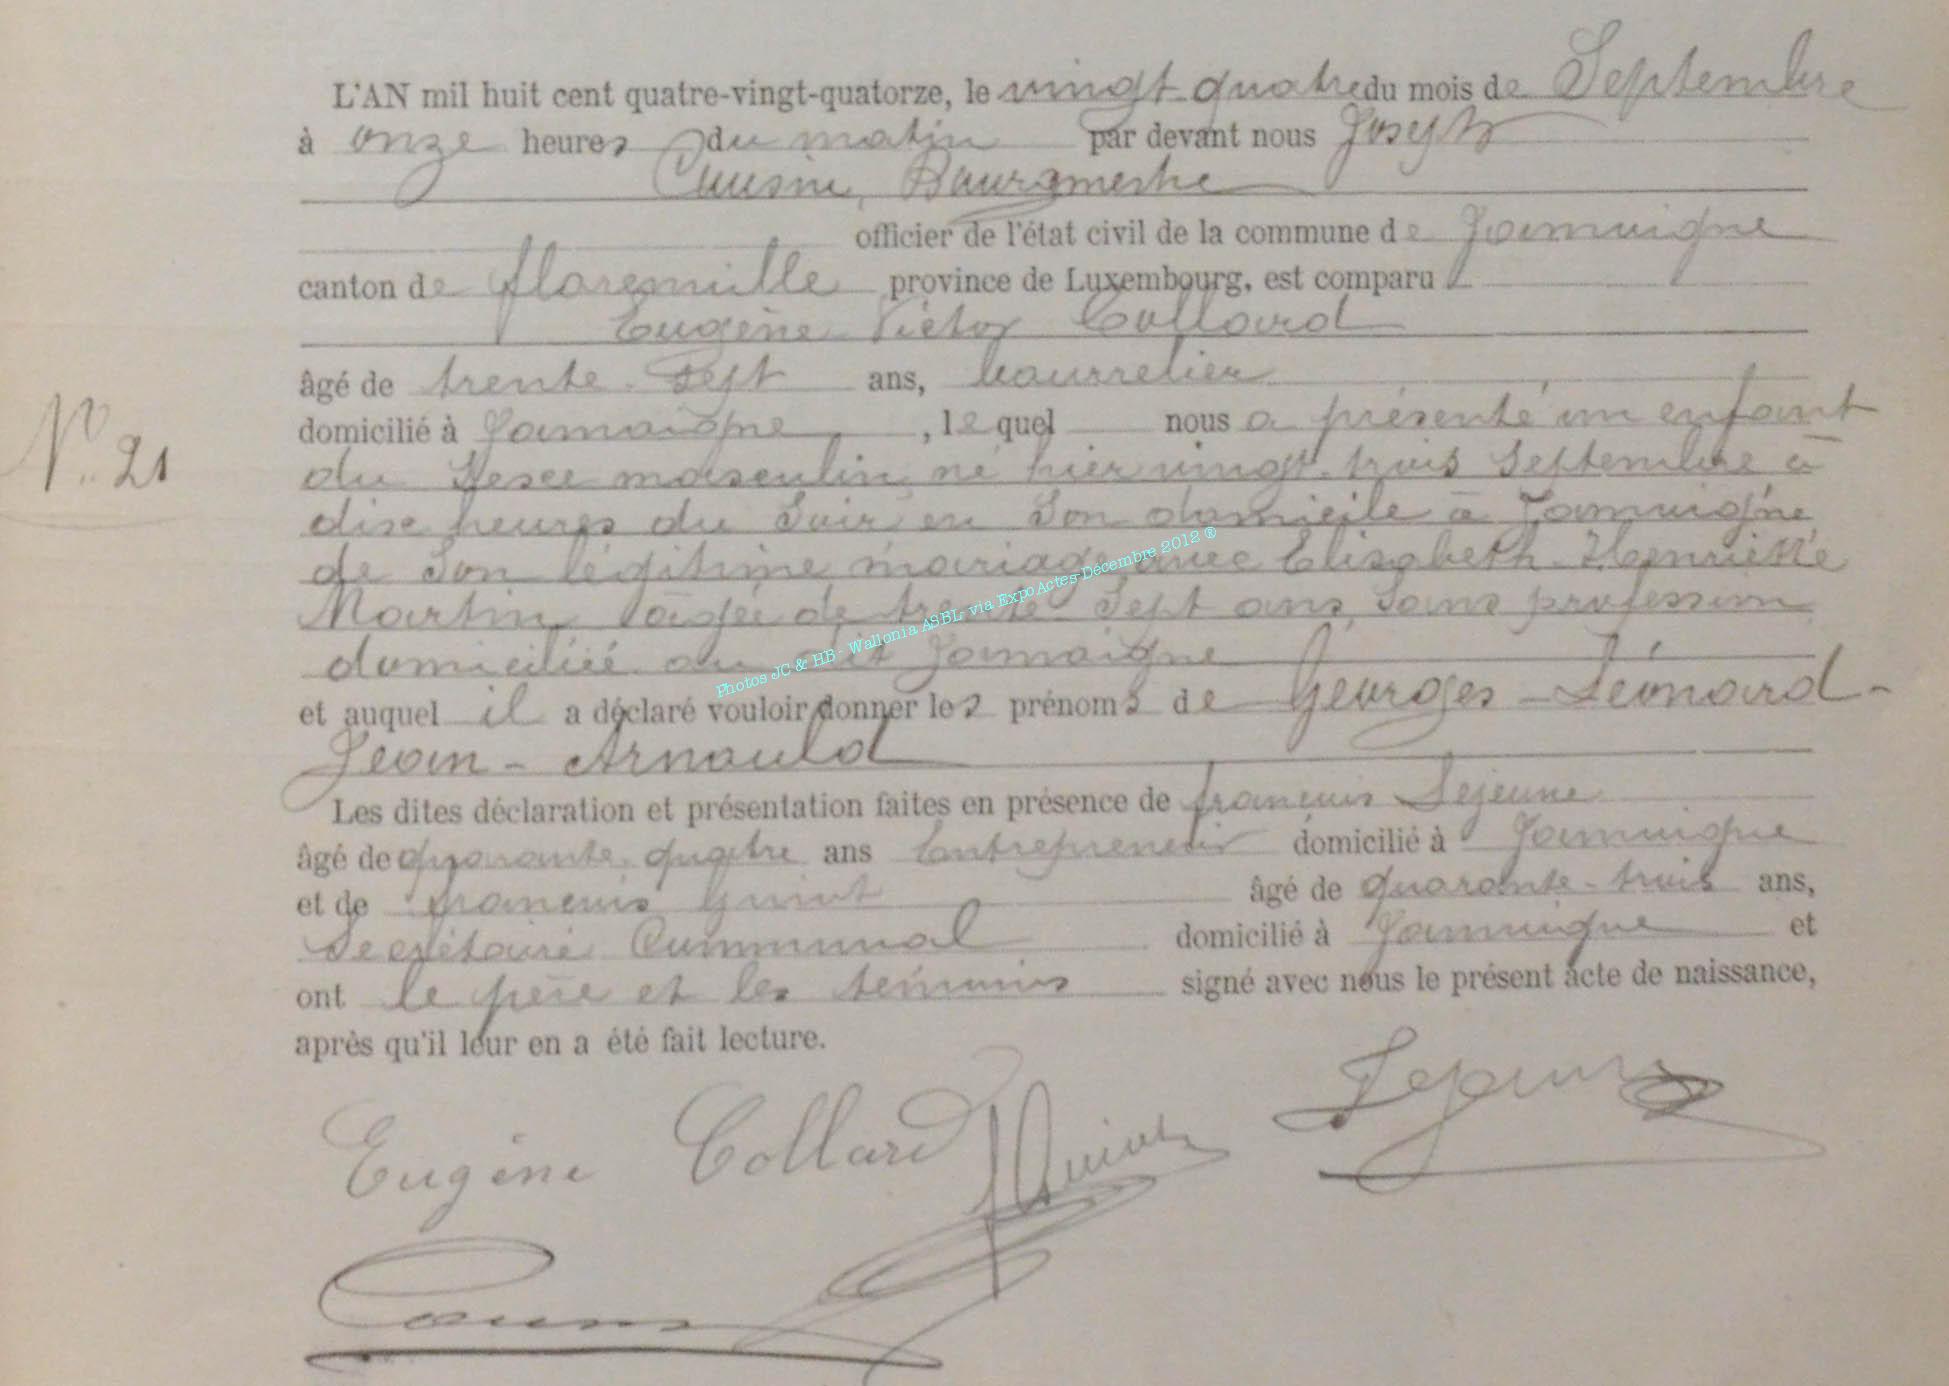 L'AN mil huit cent quatre-vingt-quatorze, le vingt-quatre du mois de Septembre
à onze heures du matin par devant nous Joseph
Cousin, Bourgmestre
officier de l'état civil de la commune de Jamoigne
canton de florenville province de Luxembourg, est comparu
Eugène Victor Collard
âgé de trente-sept ans, bourrelier
domicilié à Jamoigne, lequel nous a présenté un enfant
du Sexe masculin né hier vingt-trois Septembre à
dix heures du Soir en Son domicile à Jamoigne
de Son légitime mariage avec Elisabeth Henriette
Martin âgée de trente-Sept ans, Sans profession
domiciliée au dit Jamoigne
et auquel il a déclaré vouloir donner les prénoms de Georges-Léonard-
Jean-Arnould
Les dites déclaration et présentation faites en présence de françois Lejeune
âgé de quarante-quatre ans Entrepreneur domicilié à Jamoigne
et de françois Guiot âgé de quarante-trois ans,
Secrétaire Communal domicilié à Jamoigne et
ont le père et les témoins signé avec nous le présent acte de naissance,
après qu'il leur en a été fait lecture.
N° 21
Eugène Collard
Guiot
Lejeune
Photos JC & HB - Wallonia ASBL via ExpoActes-Décembre 2012 ®